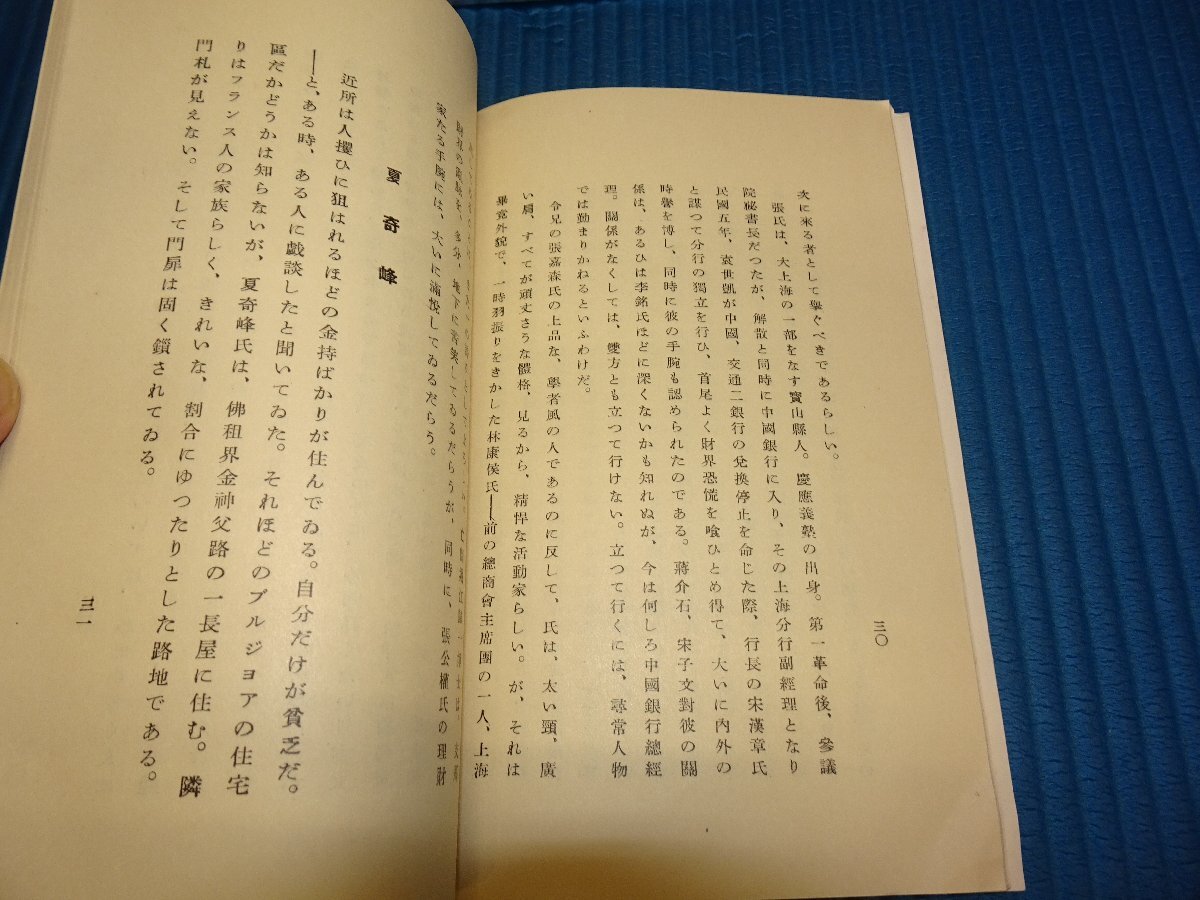 三〇
次に来る者として擧ぐべきであるらしい。
張氏は、大上海の一部をなす寶山縣人。慶應義塾の出身。第一革命後、參議
院祕書長だつたが、解散と同時に中國銀行に入り、その上海分行副經理となり
民國五年、袁世凱が中國、交通二銀行の兌換停止を命じた際、行長の宋漢章氏
と謀つて分行の獨立を行ひ、首尾よく財界恐慌を喰ひとめ得て、大いに内外の
時譽を博し、同時に彼の手腕も認められたのである。蔣介石、宋子文對彼の關
係は、あるひは李銘氏ほどに深くないかも知れぬが、今は何しろ中國銀行總經
理。關係がなくしては、雙方とも立つて行けない。立つて行くには、尋常人物
では勤まりかねるといふわけだ。
令兄の張嘉森氏の上品な、學者風の人であるのに反して、氏は、太い頸、廣
い肩、すべてが頑丈さうな體格、見るから、精悍な活動家らしい。が、それは
畢竟外貌で、一時羽振りをきかした林康侯氏――前の總商會主席團の一人、上海
地下に苦笑してゐるだらうが、同時に、張公權氏の理財
家たる手腕には、大いに滿悅してゐるだらう。
夏奇峰
近所は人攫ひに狙はれるほどの金持ばかりが住んでゐる。自分だけが貧乏だ。
――と、ある時、ある人に戯談したと聞いてゐた。それほどのブルジョアの住宅
區だかどうかは知らないが、夏奇峰氏は、佛租界金神父路の一長屋に住む。隣
りはフランス人の家族らしく、きれいな、割合にゆつたりとした路地である。
門札が見えない。そして門扉は固く鎖されてゐる。
三一